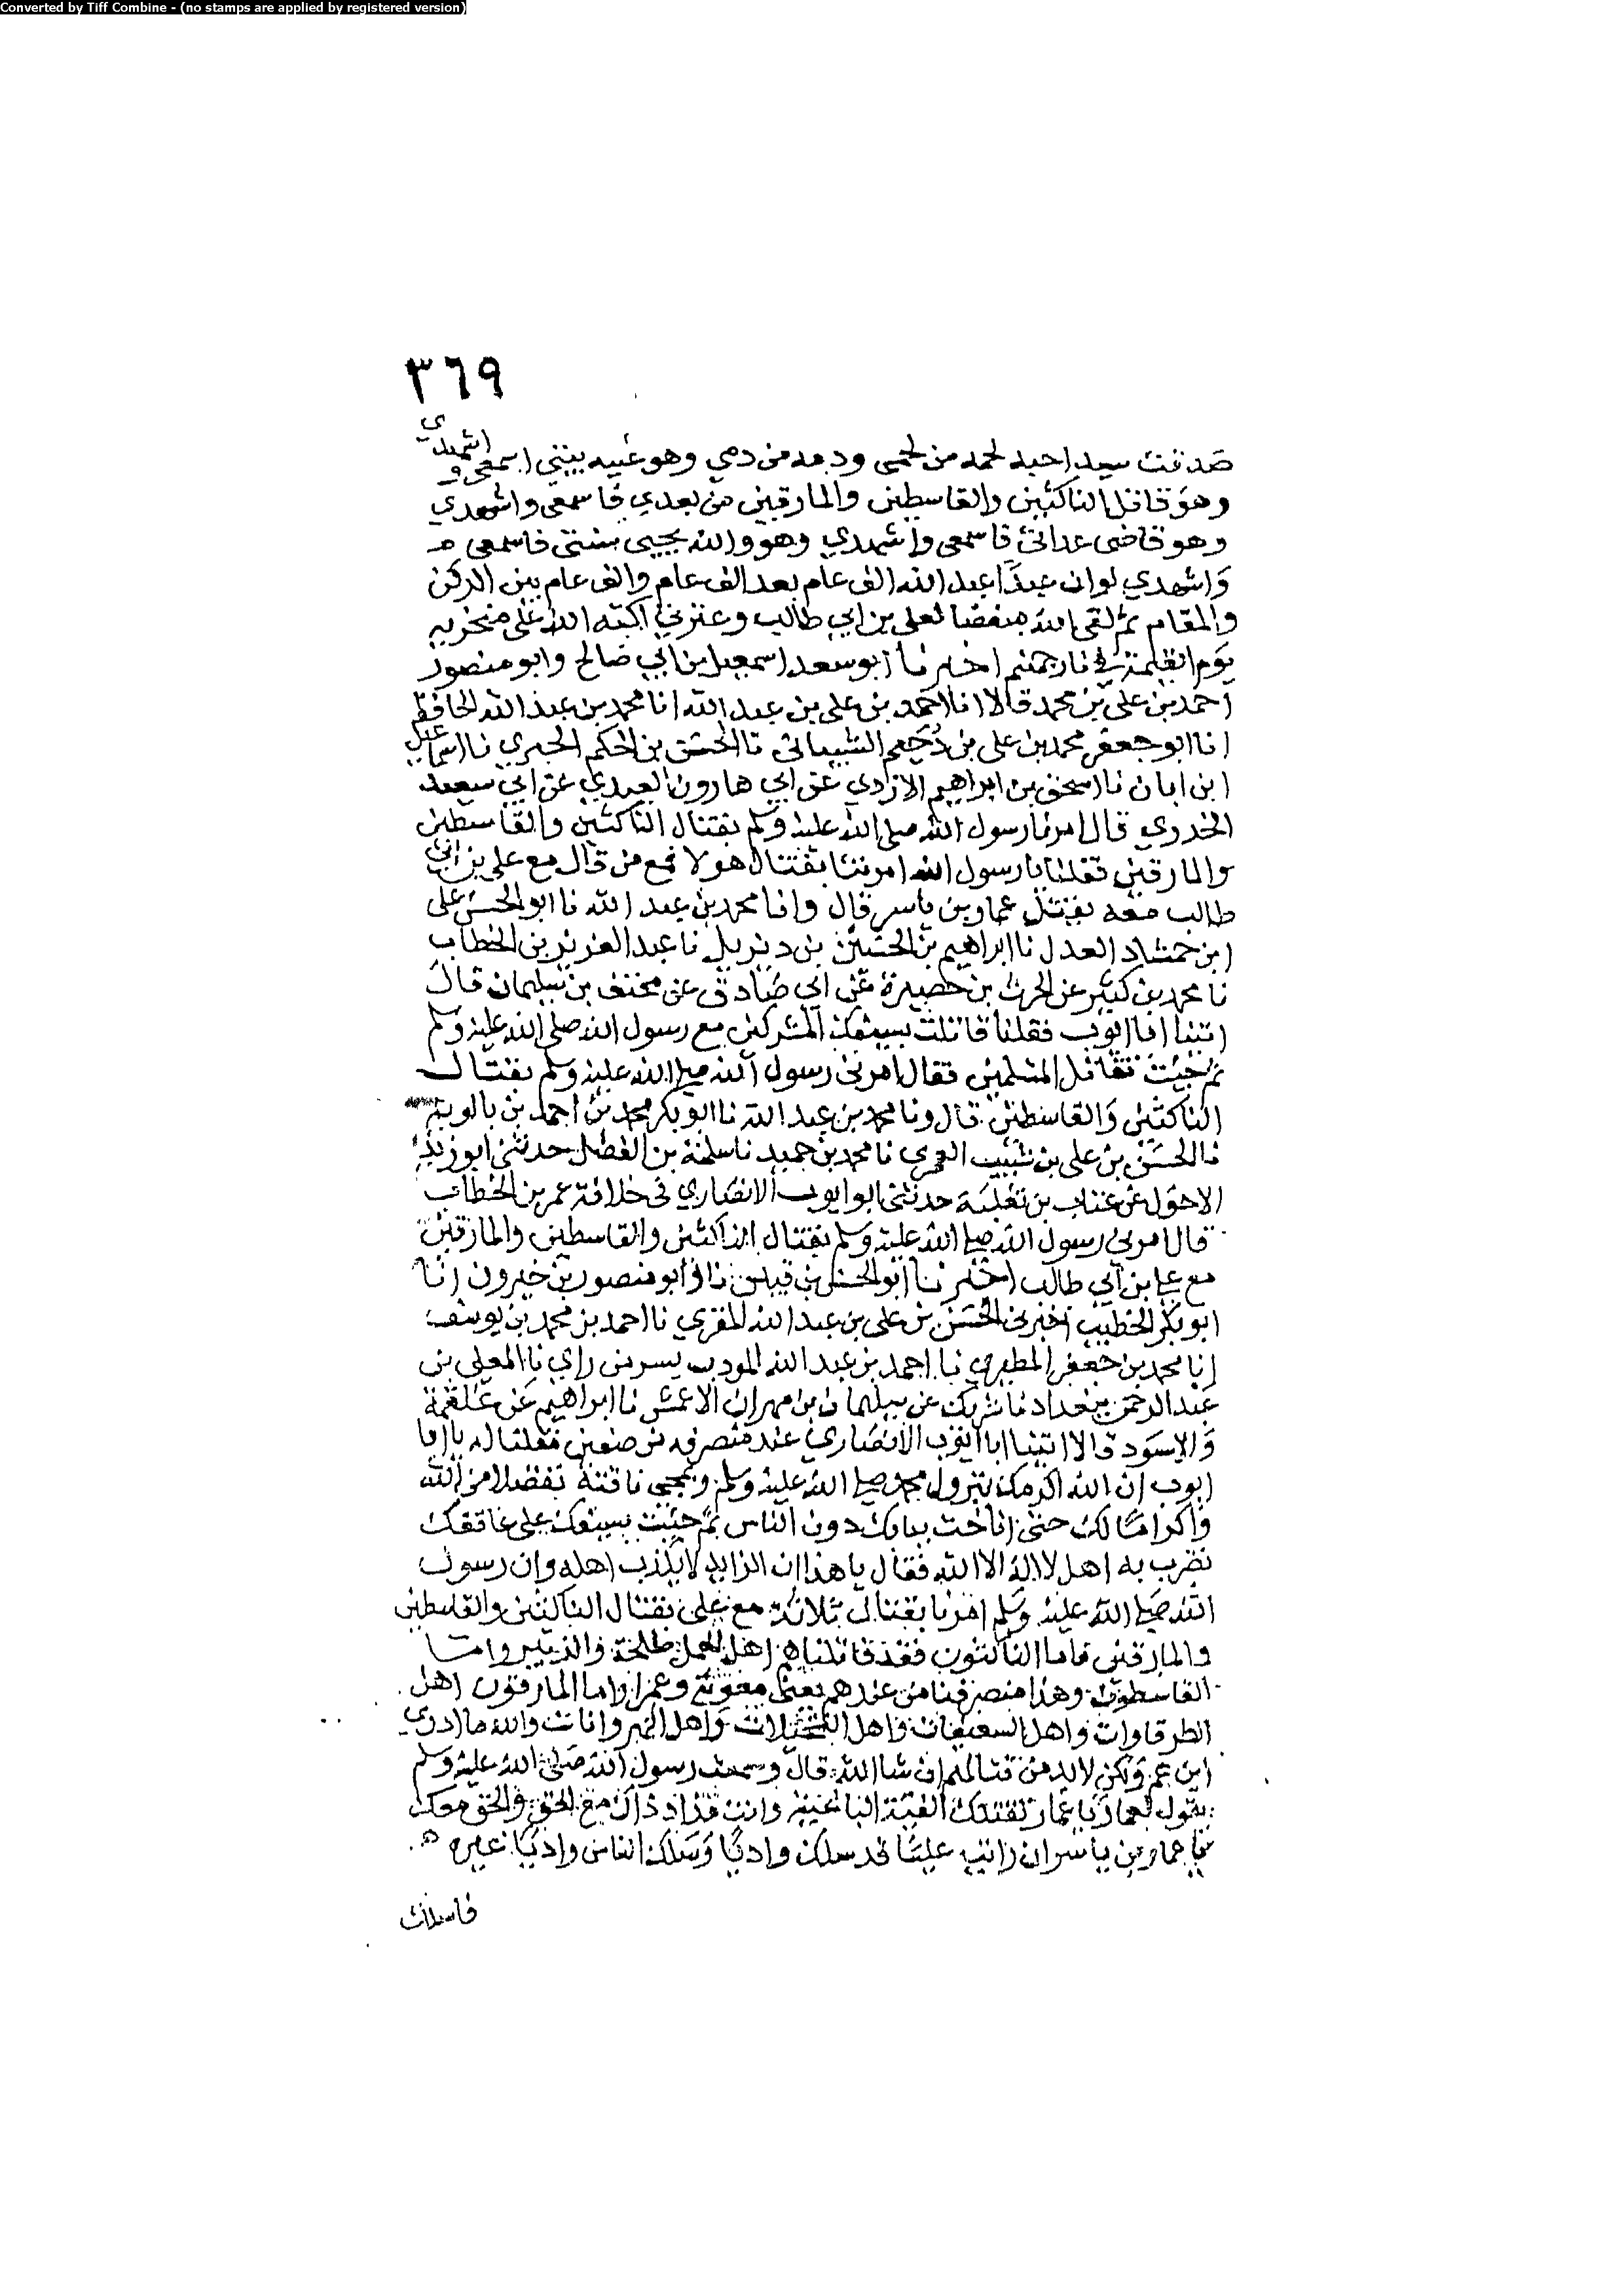 Converted by Tiff Combine - (no stamps are applied by registered version)
٣٦٩
صدقت سيد احبه لحمه من لحمي ودمه من دمي وهو عيبه بيتي اسمعي و اشهدي
وهو قاتل الناكثين والقاسطين والمارقين من بعدي فاسمعي واشهدي
وهو قاضي عداتي فاسمعي واشهدي وهو والله يحيي سنتي فاسمعي
واشهدي لو ان عبدا عبد الله الف عام بعد الف عام والف عام بين الركن
والمقام ثم لقي الله مبغضا لعلي بن ابي طالب وعترتي اكبه الله على منخريه
يوم القيمة في نار جهنم اخبرنا ابو سعد اسمعيل بن ابي صالح وابو منصور
احمد بن علي بن محمد قالا انا احمد بن علي بن عبد الله انا محمد بن عبد الله الحافظ
انا ابو جعفر محمد بن علي بن دحيم الشيباني نا الحسين بن الحكم الحبري نا اسماعيل
ابن ابان نا اسحق بن ابراهيم الازدي عن ابي هارون العبدي عن ابي سعيد
الخدري قال امرنا رسول الله صلى الله عليه وسلم بقتال الناكثين والقاسطين
والمارقين فقلنا يا رسول الله امرتنا بقتال هولا فمع من قال مع علي بن ابي
طالب معه يقتل عمار بن ياسر قال وانا محمد بن عبد الله نا ابو الحسن علي
ابن حمشاد العدل نا ابراهيم بن الحسين بن ديزيل نا عبد العزيز بن الخطاب
نا محمد بن كثير عن الحرث بن حصيرة عن ابي صادق عن مخنف بن سليمان قال
اتينا ابا ايوب فقلنا قاتلت بسيفك المشركين مع رسول الله صلى الله عليه وسلم
ثم جيت تقاتل المسلمين فقال امرني رسول الله صلى الله عليه وسلم بقتال
الناكثين والقاسطين قال ونا محمد بن عبد الله نا ابو بكر محمد بن احمد بن بالويه
نا الحسن بن علي بن شبيب العمري نا محمد بن حميد نا سلمة بن الفضل حدثني ابو زيد
الاحول عن عتاب بن ثعلبة حدثني ابو ايوب الانصاري في خلافة عمر بن الخطاب
قال امرني رسول الله صلى الله عليه وسلم بقتال الناكثين والقاسطين والمارقين
مع علي بن ابي طالب اخبرنا ابو الحسن بن قبيس نا وابو منصور بن خيرون انا
ابو بكر الخطيب اخبرني الحسن بن علي بن عبد الله المقري نا احمد بن محمد بن يوسف
انا محمد بن جعفر المطيري نا احمد بن عبد الله المودب بسر من راي نا المعلى بن
عبد الرحمن ببغداد نا شريك عن سليمان بن مهران الاعمش نا ابراهيم عن علقمة
والاسود قالا اتينا ابا ايوب الانصاري عند منصرفه من صفين فقلنا له يا ابا
ايوب ان الله اكرمك بنزول محمد صلى الله عليه وسلم وبمجي ناقته تفضلا من الله
واكراما لك حتى اناخت ببابك دون الناس ثم جئت بسيفك على عاتقك
تضرب به اهل لا اله الا الله فقال يا هذا ان الرايد لا يكذب اهله وان رسول
الله صلى الله عليه وسلم امرنا بقتال ثلاثة مع علي بقتال الناكثين والقاسطين
والمارقين فاما الناكثون فقد قاتلناهم اهل الجمل طلحة والزبير واما
القاسطون وهذا منصرفنا من عندهم يعني معوية وعمرا واما المارقون اهل
الطرقاوات واهل السعيفات واهل النخيلات واهل النهروانات والله ما ادري
اين هم ولكن لابد من قتالهم ان شا الله قال وسمعت رسول الله صلى الله عليه وسلم
يقول لعمار يا عمار تقتلك الفئة الباغية وانت مذ اذ ذاك مع الحق والحق معك
يا عمار بن ياسر ان رايت عليا قد سلك واديا وسلك الناس واديا غيره
فاسلك